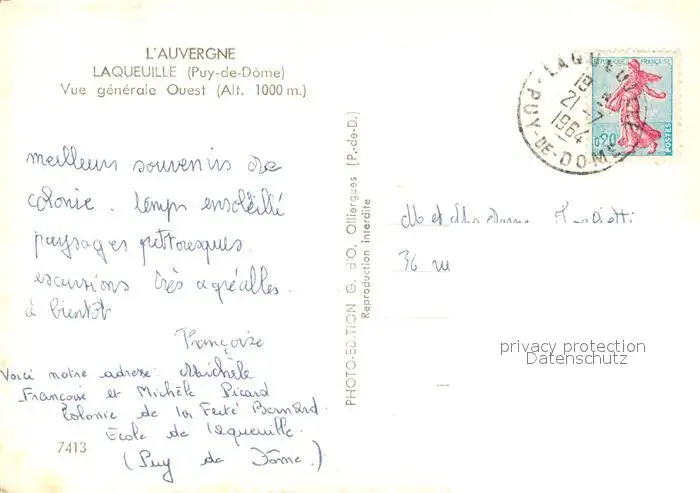 L'AUVERGNE
LAQUEUILLE (Puy-de-Dôme)
Vue générale Ouest (Alt. 1000 m.)
meilleurs souvenirs de
colonie. temps ensoleillé
paysages pittoresques.
excursions très agréables.
à bientôt
Françoise
Michèle
Voici notre adresse:
Françoise et Michèle Picard
Colonie de la Ferté Bernard.
Ecole de Laqueuille.
(Puy de Dôme.)
7413
PHOTO-EDITION G. d'O. Olliergues (P.-de-D.)
Reproduction interdite
LAQUEUILLE
19
21-7
1964
PUY-DE-DOME
REPUBLIQUE FRANÇAISE
0,20
POSTES
M et Madame
36
privacy protection
Datenschutz